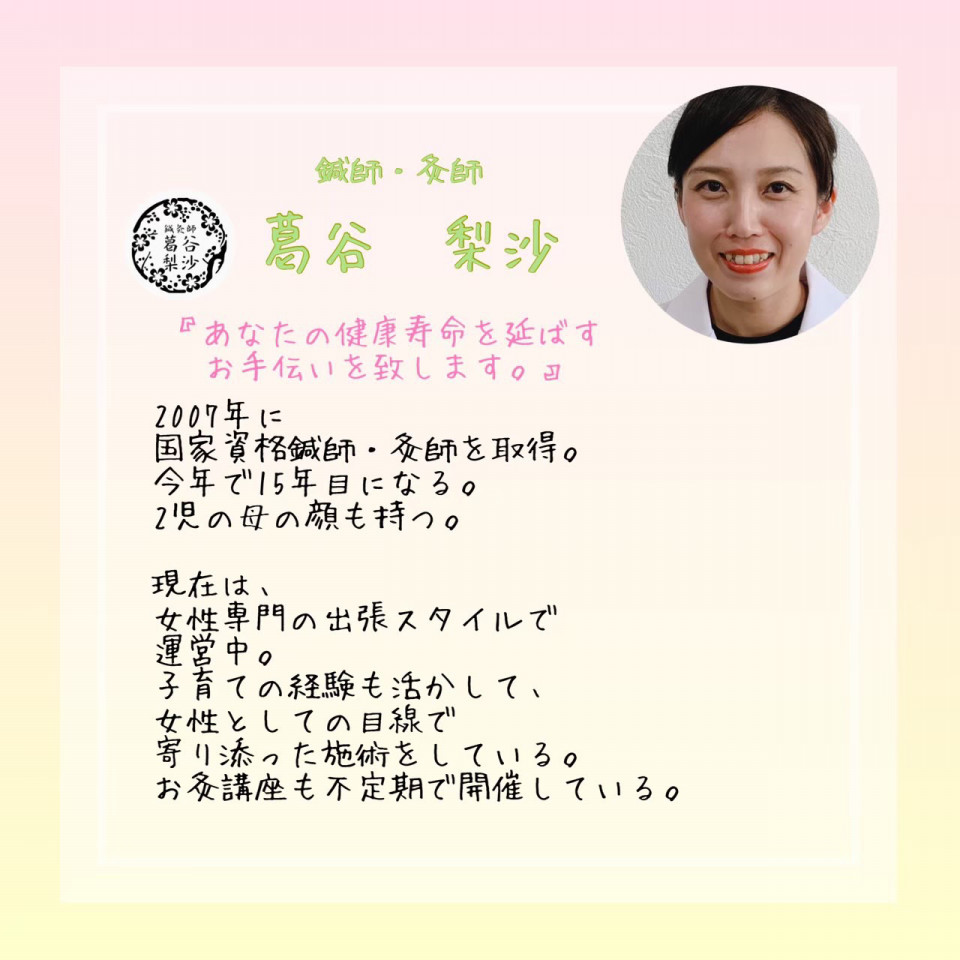 鍼師・灸師
葛谷 梨沙
鍼灸師
葛谷
梨沙
『あなたの健康寿命を延ばす
お手伝いを致します。』
2007年に
国家資格鍼師・灸師を取得。
今年で15年目になる。
2児の母の顔も持つ。
現在は、
女性専門の出張スタイルで
運営中。
子育ての経験も活かして、
女性としての目線で
寄り添った施術をしている。
お灸講座も不定期で開催している。